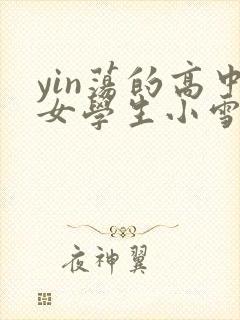 yin蕩的高中
女學生小雪
夜神翼